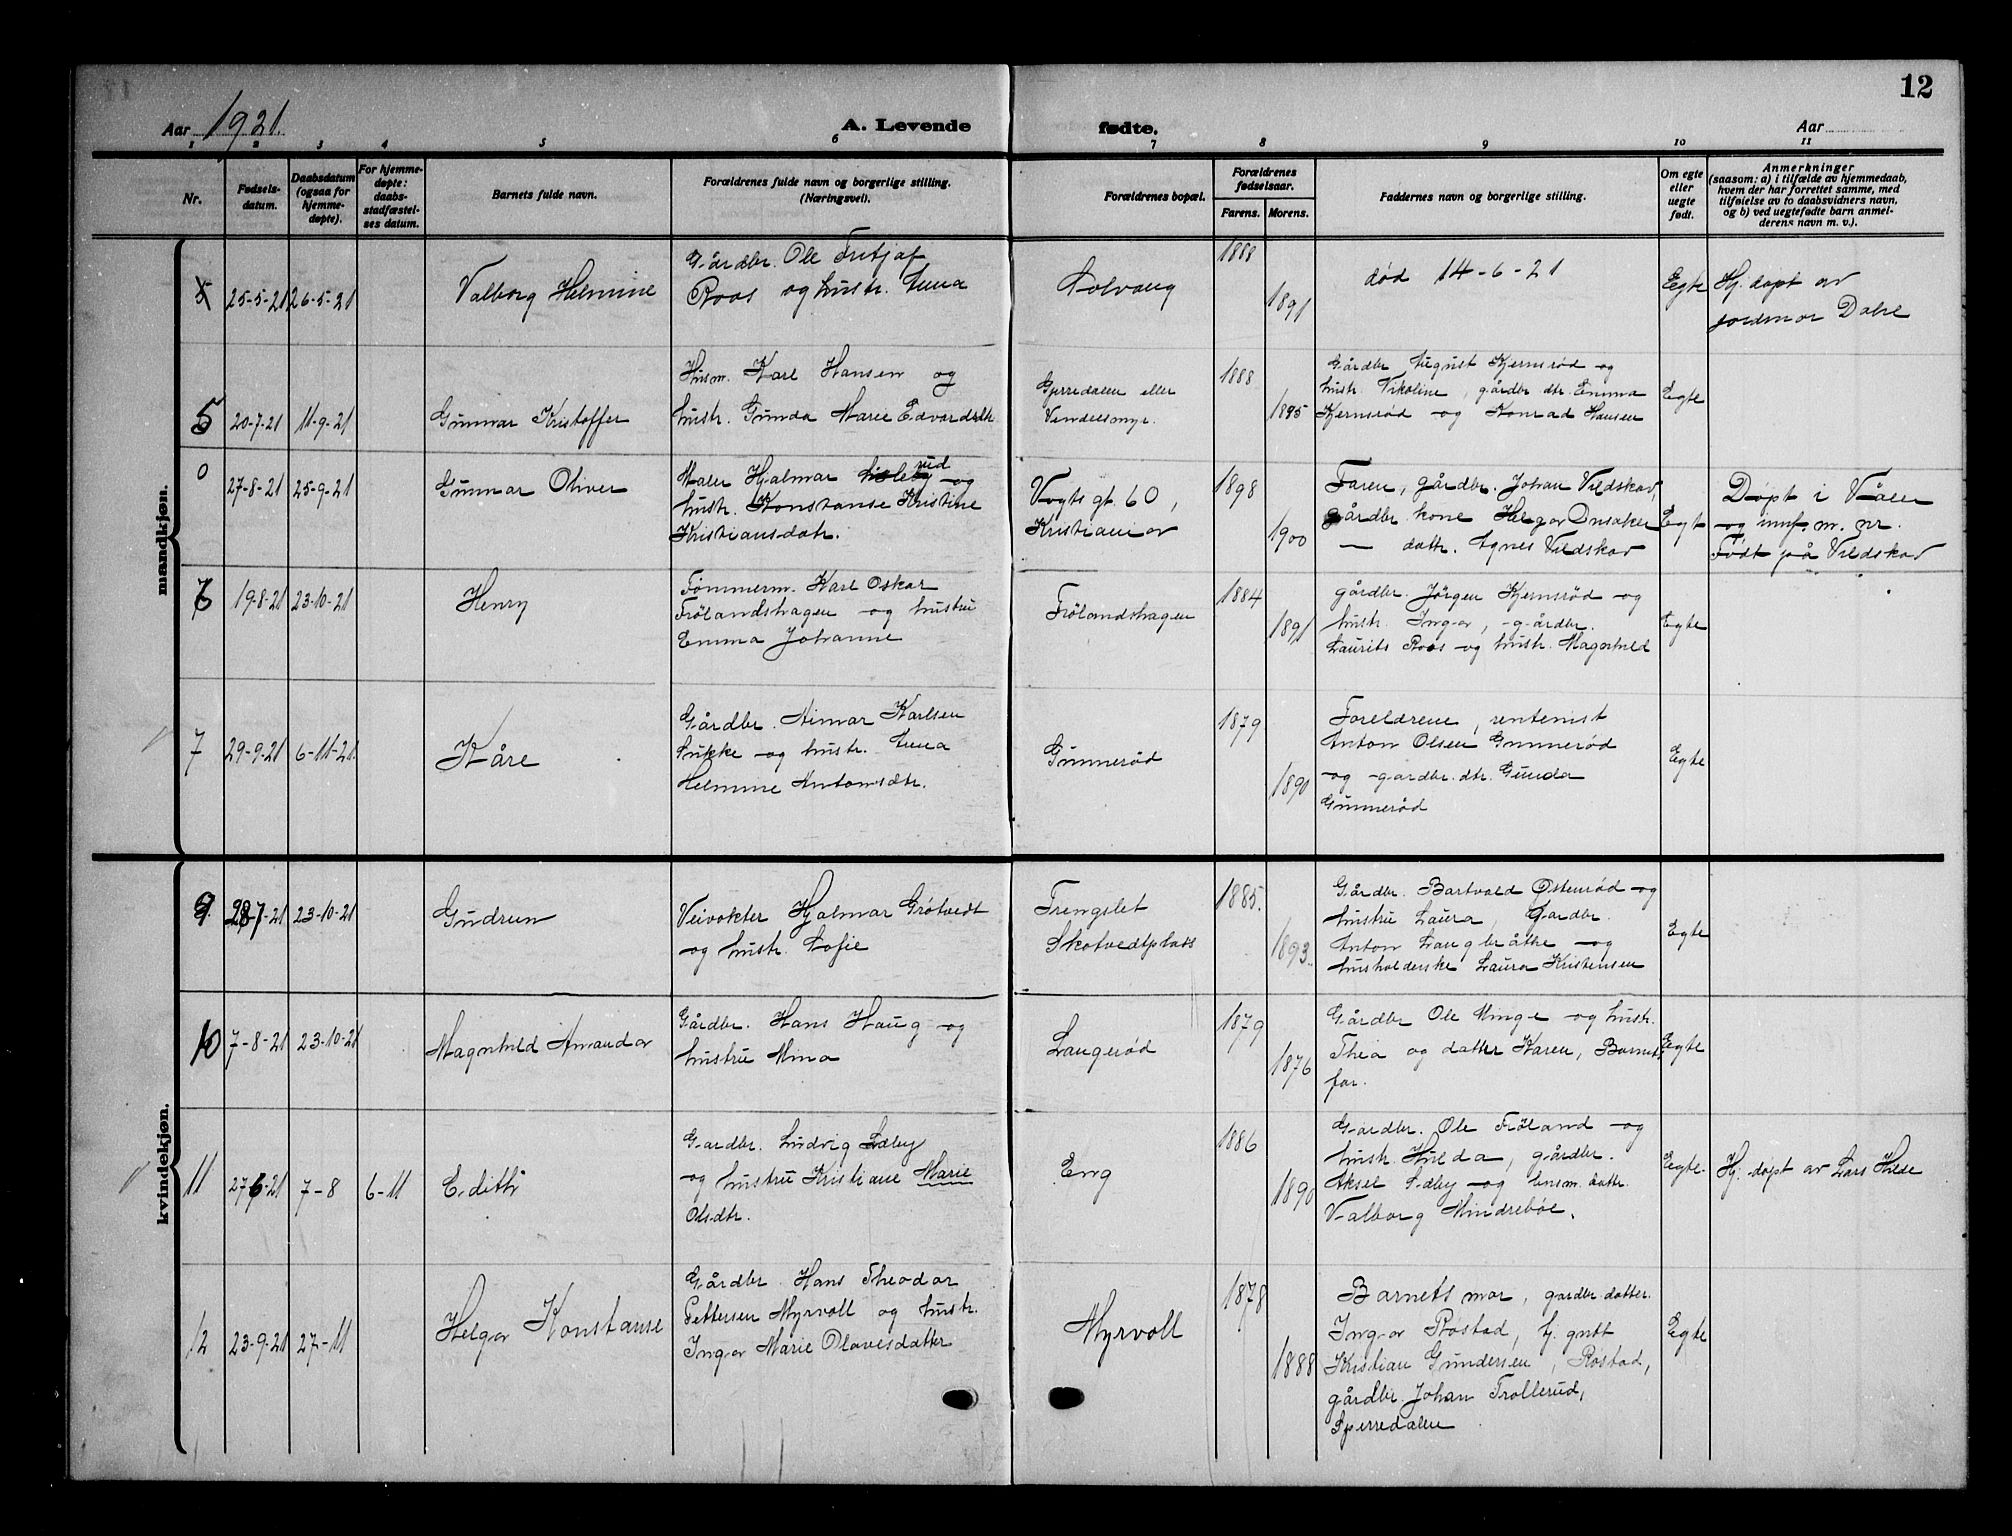 12
Aar 1921.
A. Levende fødte.
Aar
1 2 3 4 5 6 7 8 9 10 11
Nr.
Fødsels-
datum.
Daabsdatum
(ogsaa for
hjemme-
døpte).
For hjemme-
døpte:
daabs-
stadfæstel-
ses datum.
Barnets fulde navn.
Forældrenes fulde navn og borgerlige stilling.
(Næringsvei).
Forældrenes bopæl.
Forældrenes
fødselsaar.
Farens. Morens.
Faddernes navn og borgerlige stilling.
Om egte
eller
uegte
født.
Anmerkninger
(saasom: a) i tilfælde av hjemmedaab,
hvem der har forrettet samme, med
tilføielse av to daabsvidners navn,
og b) ved uegtefødte barn anmel-
derens navn m. v.).
mandkjøn.
25-5-21 26-5-21
Valborg Helmine
Gårdbr. Ole Fritjof
Roos og hustr. Anna
Solvang
1888
1891
død 14-6-21
Egte
Hj. døpt av
jordmor Dahl
5
20-7-21 11-9-21
Gunnar Kristoffer
Husm. Karl Hansen og
hustr. Gunda Marie Edvardsdtr
Sperredalen eller
Vindelsmyr.
1888
1895
Gårdbr August Kjernsrød og
hustr. Nikoline, gårdbr dtr. Emma
Kjernsrød og Konrad Hansen
Egte
0
27-8-21 25-9-21
Gunnar Oliver
Maler Hjalmar rud og
hustr. Konstanse Kristine
Kristiansdatr.
Vogts gt. 60,
Kristiania
1898
1900
Faren, gårdbr. Johan Vildskov,
gårdbr. kone Helga Onsaker
— datr. Agnes Vildskov
Egt
Døpt i Våler
og innf. m. nr.
Født på Vildskov
6
19-8-21 23-10-21
Henry
Tømmerm. Karl Oskar
Frölandshagen og hustru
Emma Johanne
Frölandshagen
1884
1891
gårdbr. Jörgen Kjernsrød og
hustr. Inga, gårdbr.
Laurits Roos og hustr. Magnhild
Egte
7
29-9-21 6-11-21
Kåre
Gårdbr. Aimar Karlsen
Sukke og hustr. Anna
Helmine Antonsdtr.
Gunnerød
1879
1890
Foreldrene, rentenist
Anton Olsen Gunnerød
og gardbr. dtr. Gunda
Gunnerød
Egte
kvindekjøn.
9
28-7-21 23-10-21
Gudrun
Veivokter Hjalmar Grötvedt
og hustr. Sofie
Trengslet
Skotvedtplats
1885.
1893.
Gårdbr. Bartvald Østenrød og
hustru Laura, Gardbr.
Anton Langbråtke og
husholderske Laura Kristensen
Egte
10
7-8-21 23-10-21
Magnhild Amanda
Gårdbr. Hans Haug og
hustru Mina
Langerød
1879
1876
Gårdbr Ole Minge og hustr.
Thea og datter Karen, Barnets
far.
Egte
11
27-6-21 7-8 6-11
Edith
Gardbr. Ludvig Sæby
og hustru Kristiane Marie
Olsdtr.
Eng
1886
1890
Gardbr. Ole Fröland og
hustr. Hulda, gårdbr.
Aksel Sæby og husm. datr.
Valborg Mindrebøe.
Egte.
Hj. døpt av Lars Hilde
12
23-9-21 27-11
Helga Konstanse
Gårdbr Hans Theodor
Pettersen Myrvoll og hustr.
Inga Marie Olavesdatter
Myrvoll
1878
1888
Barnets mor, gardbr. datter.
Inga Rostad, gutt
Kristian Gundersen, Rostad,
gårdbr. Johan Trollerud,
Sperredalen
Egte